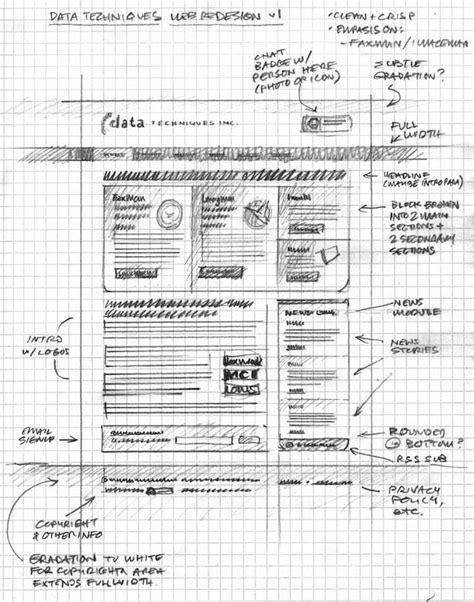 DATA TECHNIQUES WEB REDESIGN v1
• CLEAN + CRISP
• EMPASISON:
- FAXMAN/
CHAT
BADGE W/
PERSON HERE
(PHOTO OF ICON)
SUBTLE
GRADATION?
data TECHNIQUES INC.
FULL
WIDTH
HEADLINE
(MAYBE INTRO PARA)
FaxMan
BLOCK BROKEN
INTO 2 MAIN
SECTIONS +
2 SECONDARY
SECTIONS
NEWS
MODULE
INTRO
W/ LOGOS
NEWS
STORIES
MCI
EMAIL
SIGNUP
ROUNDED
@ BOTTOM?
RSS SUB
PRIVACY
POLICY,
ETC.
COPYRIGHT
& OTHER INFO
GRADATION TO WHITE
FOR COPYRIGHT AREA
EXTENDS FULL WIDTH.